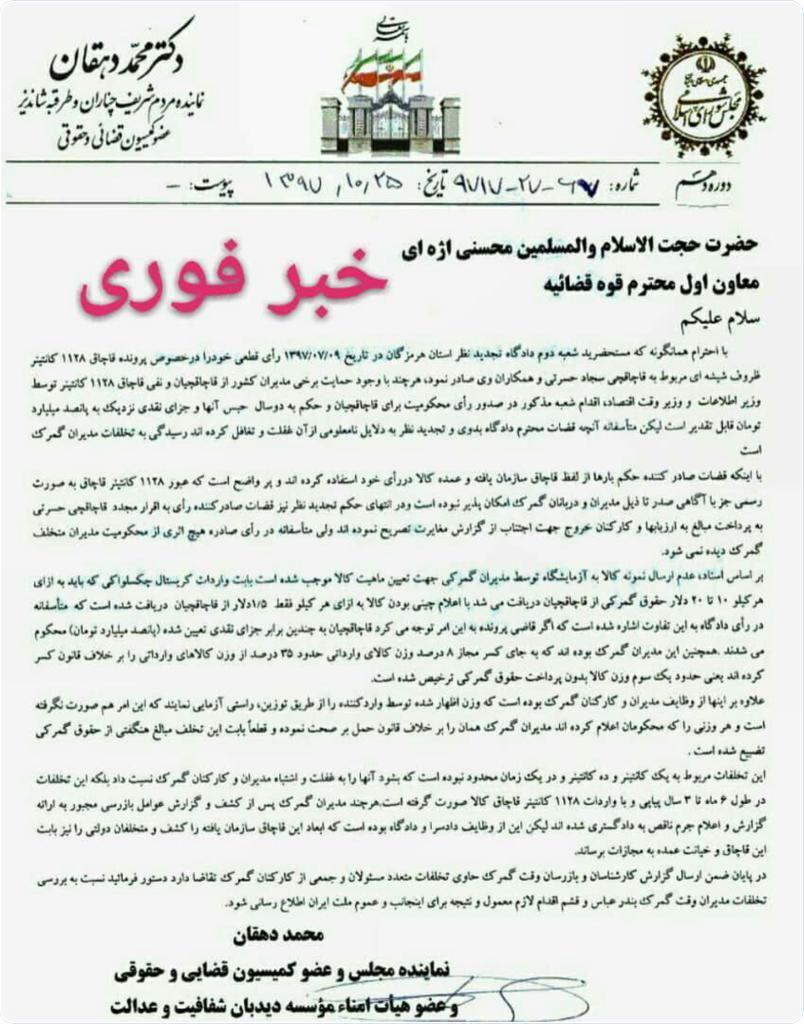 باسمه تعالی
جمهوری اسلامی ایران
مجلس شورای اسلامی
دکتر محمد دهقان
نماینده مردم شریف چناران و طرقبه شاندیز
عضو کمیسیون قضائی و حقوقی
دوره دهم
شماره: ۹۷۱۷-۲۷-۶۷ تاریخ: ۱۳۹۷,۱۰,۲۵ پیوست: –
حضرت حجت الاسلام والمسلمین محسنی اژه ای
معاون اول محترم قوه قضائیه
خبر فوری
سلام علیکم
با احترام همانگونه که مستحضرید شعبه دوم دادگاه تجدید نظر استان هرمزگان در تاریخ ۱۳۹۷/۰۷/۰۹ رأی قطعی خودرا درخصوص پرونده قاچاق ۱۱۲۸ کانتینر
ظروف شیشه ای مربوط به قاچاقچی سجاد حسرتی و همکاران وی صادر نمود، هرچند با وجود حمایت برخی مدیران کشور از قاچاقچیان و نفی قاچاق ۱۱۲۸ کانتینر توسط
وزیر اطلاعات و وزیر وقت اقتصاد، اقدام شعبه مذکور در صدور رأی محکومیت برای قاچاقچیان و حکم به دوسال حبس آنها و جزای نقدی نزدیک به پانصد میلیارد
تومان قابل تقدیر است لیکن متأسفانه آنچه قضات محترم دادگاه بدوی و تجدید نظر به دلایل نامعلومی ازآن غفلت و تغافل کرده اند رسیدگی به تخلفات مدیران گمرک
است
با اینکه قضات صادر کننده حکم بارها از لفظ قاچاق سازمان یافته و عمده کالا دررأی خود استفاده کرده اند و پر واضح است که عبور ۱۱۲۸ کانتینر قاچاق به صورت
رسمی جز با آگاهی صدر تا ذیل مدیران و دربانان گمرک امکان پذیر نبوده است ودر انتهای حکم تجدید نظر نیز قضات صادرکننده رأی به اقرار مجدد قاچاقچی حسرتی
به پرداخت مبالغ به ارزیابها و کارکنان خروج جهت اجتناب از گزارش مغایرت تصریح نموده اند ولی متأسفانه در رأی صادره هیچ اثری از محکومیت مدیران متخلف
گمرک دیده نمی شود.
بر اساس اسناد، عدم ارسال نمونه کالا به آزمایشگاه توسط مدیران گمرکی جهت تعیین ماهیت کالا موجب شده است بابت واردات کریستال چکسلواکی که باید به ازای
هرکیلو ۱۰ تا ۲۰ دلار حقوق گمرکی از قاچاقچیان دریافت می شد با اعلام چینی بودن کالا به ازای هر کیلو فقط ۱/۵دلار از قاچاقچیان دریافت شده است که متأسفانه
در رأی دادگاه به این تفاوت اشاره شده است که اگر قاضی پرونده به این امر توجه می کرد قاچاقچیان به چندین برابر جزای نقدی تعیین شده (پانصد میلیارد تومان) محکوم
می شدند .همچنین این مدیران گمرک بوده اند که به جای کسر مجاز ۸ درصد وزن کالای وارداتی حدود ۳۵ درصد از وزن کالاهای وارداتی را بر خلاف قانون کسر
کرده اند یعنی حدود یک سوم وزن کالا بدون پرداخت حقوق گمرکی ترخیص شده است.
علاوه بر اینها از وظایف مدیران و کارکنان گمرک بوده است که وزن اظهار شده توسط واردکننده را از طریق توزین، راستی آزمایی نمایند که این امر هم صورت نگرفته
است و هر وزنی را که محکومان اعلام کرده اند مدیران گمرک همان را بر خلاف قانون حمل بر صحت نموده و قطعاً بابت این تخلف مبالغ هنگفتی از حقوق گمرکی
تضییع شده است .
این تخلفات مربوط به یک کانتینر و ده کانتینر و در یک زمان محدود نبوده است که بشود آنها را به غفلت و اشتباه مدیران و کارکنان گمرک نسبت داد بلکه این تخلفات
در طول ۶ ماه تا ۳ سال پیاپی و با واردات ۱۱۲۸ کانتینر قاچاق کالا صورت گرفته است.هرچند مدیران گمرک پس از کشف و گزارش عوامل بازرسی مجبور به ارائه
گزارش و اعلام جرم ناقص به دادگستری شده اند لیکن این از وظایف دادسرا و دادگاه بوده است که ابعاد این قاچاق سازمان یافته را کشف و متخلفان دولتی را نیز بابت
این قاچاق و خیانت عمده به مجازات برساند.
در پایان ضمن ارسال گزارش کارشناسان و بازرسان وقت گمرک حاوی تخلفات متعدد مسئولان و جمعی از کارکنان گمرک تقاضا دارد دستور فرمائید نسبت به بررسی
تخلفات مدیران وقت گمرک بندر عباس و قشم اقدام لازم معمول و نتیجه برای اینجانب و عموم ملت ایران اطلاع رسانی شود.
محمد دهقان
نماینده مجلس و عضو کمیسیون قضایی و حقوقی
و عضو هیأت امناء مؤسسه دیدبان شفافیت و عدالت